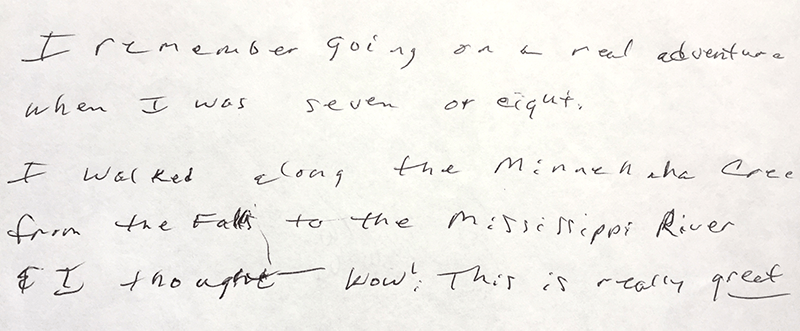 I remember going on a real adventure
when I was seven or eight.
I walked along the Minnehaha Cree
from the Falls to the Mississippi River
& I thought Wow! This is really great